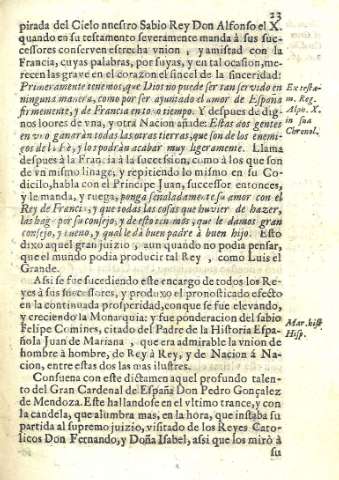 23
pirada del Cielo nnestro Sabio Rey Don Alfonso el X.
quando en su testamento severamente manda à sus suc-
cessores conserven estrecha vnion , y amistad con la
Francia, cuyas palabras, por suyas, y en tal ocasion, me-
recen las grave en el corazon el sincel de la sinceridad:
Primeramente tenemos, que Dios no puede ser tan servido en
ninguna manera, como por ser ayuntado el amor de España
firmemente, y de Francia en todo tiempo. Y despues de dig-
nos loores de vna, y otra Nacion añade: Estas dos gentes
en vno ganaràn todas las otras tierras, que son de los enemi-
gos de l. Fè, y lo podràn acabar muy ligeramente. Llama
despues à la Francia à la successiòn, como à los que son
de vn mismo linage, y repitiendo lo mismo en su Co-
dicilo, habla con el Principe Juan, successor entonces,
y le manda, y ruega, ponga señaladamente su amor con el
Rey de Francia, y que todas las cosas que huvier de hazer,
las haga por su consejo, y de esto creamos, que le damos gran
consejo, y bueno, y qual le dà buen padre à buen hijo. Esto
dixo aquel gran juizio , aun quando no podia pensar,
que el mundo podia producir tal Rey , como Luis el
Grande.
Assi se fue sucediendo este encargo de todos los Re-
yes à sus successores, y produxo el pronosticado efecto
en la continuada prosperidad, con que se fue elevando,
y creciendo la Monarquia: y fue ponderacion del sabio
Felipe Comines, citado del Padre de la Historia Espa-
ñola Juan de Mariana , que era admirable la vnion de
hombre à hombre, de Rey à Rey, y de Nacion à Na-
cion, entre estas dos las mas ilustres.
Consuena con este dictamen aquel profundo talen-
to del Gran Cardenal de España Don Pedro Gonçalez
de Mendoza. Este hallandose en el vltimo trance, y con
la candela, que alumbra mas, en la hora, que instaba su
partida al supremo juizio, visitado de los Reyes Cato-
licos Don Fernando, y Doña Isabel, assi que los mirò à
su
Ex testa-
m. Reg.
Alph. X.
in sua
Chronol.
Mar. hist.
Hisp.